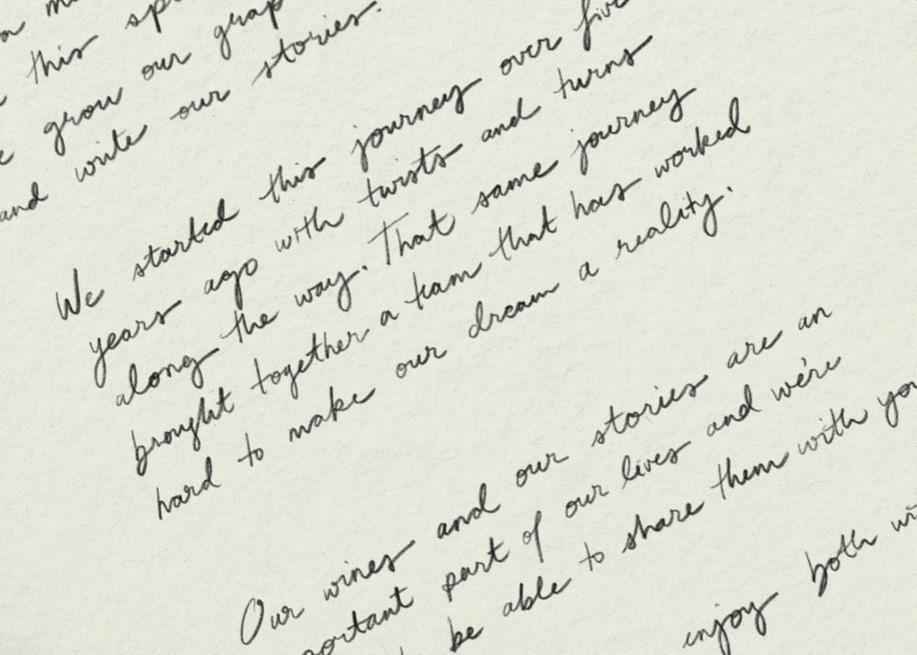 this
grow our
and write our stories.
We started this journey over five
years ago with twists and turns
along the way. That same journey
brought together a team that has worked
hard to make our dream a reality.
Our wines and our stories are an
part of our lives and we're
be able to share them with
enjoy both